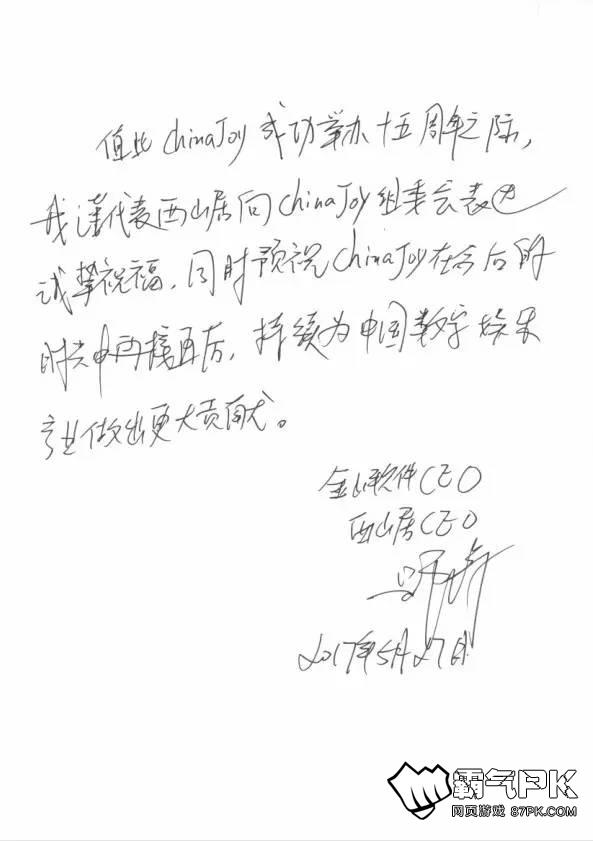 值此ChinaJoy成功举办十五周年之际，
我谨代表西山居向ChinaJoy组委会表达
诚挚祝福，同时预祝ChinaJoy在今后的
时光中再接再厉，持续为中国数字娱乐
产业做出更大贡献。
金山软件CEO
西山居CEO
2017年5月27日
霸气PK
网页游戏 87PK.COM